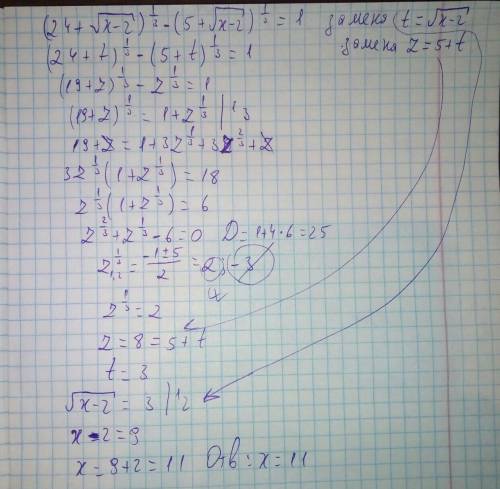 (24+√x-2)^(1/3) - (5+√x-2)^(1/3) = 1   замена t=√x-2
(24+t)^(1/3) - (5+t)^(1/3) = 1   замена z=5+t
(19+z)^(1/3) - z^(1/3) = 1
(19+z)^(1/3) = 1+z^(1/3) |^3
19+z = 1+3z^(1/3)+3z^(2/3)+z
3z^(1/3)(1+z^(1/3)) = 18
z^(1/3)(1+z^(1/3)) = 6
z^(2/3)+z^(1/3)-6=0   D=1+4·6=25
z^(1/3)_1,2 = (-1±5)/2 = 2; -3
z^(1/3) = 2
z = 8 = 5+t
t = 3
√x-2 = 3 |^2
x-2=9
x = 9+2 = 11   Отв: x=11